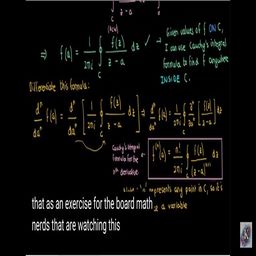 ⇒ f(a) = 1/2πi ∮ f(z)/z-a dz ✓ → Given values of f ON C,
I can use Cauchy's integral
formula to find f anywhere
INSIDE C.
Differentiate this formula:
dⁿ/daⁿ f(a) = dⁿ/daⁿ [1/2πi ∮ f(z)/z-a dz] ⇒ dⁿ/daⁿ f(a) = 1/2πi ∮ dⁿ/daⁿ [f(z)/z-a] dz
Cauchy's integral
formula for the
nth derivative
f⁽ⁿ⁾(a) = n!/2πi ∮ f(z)/(z-a)ⁿ⁺¹ dz
represents any point in C, so it's
a variable
that as an exercise for the board math
nerds that are watching this